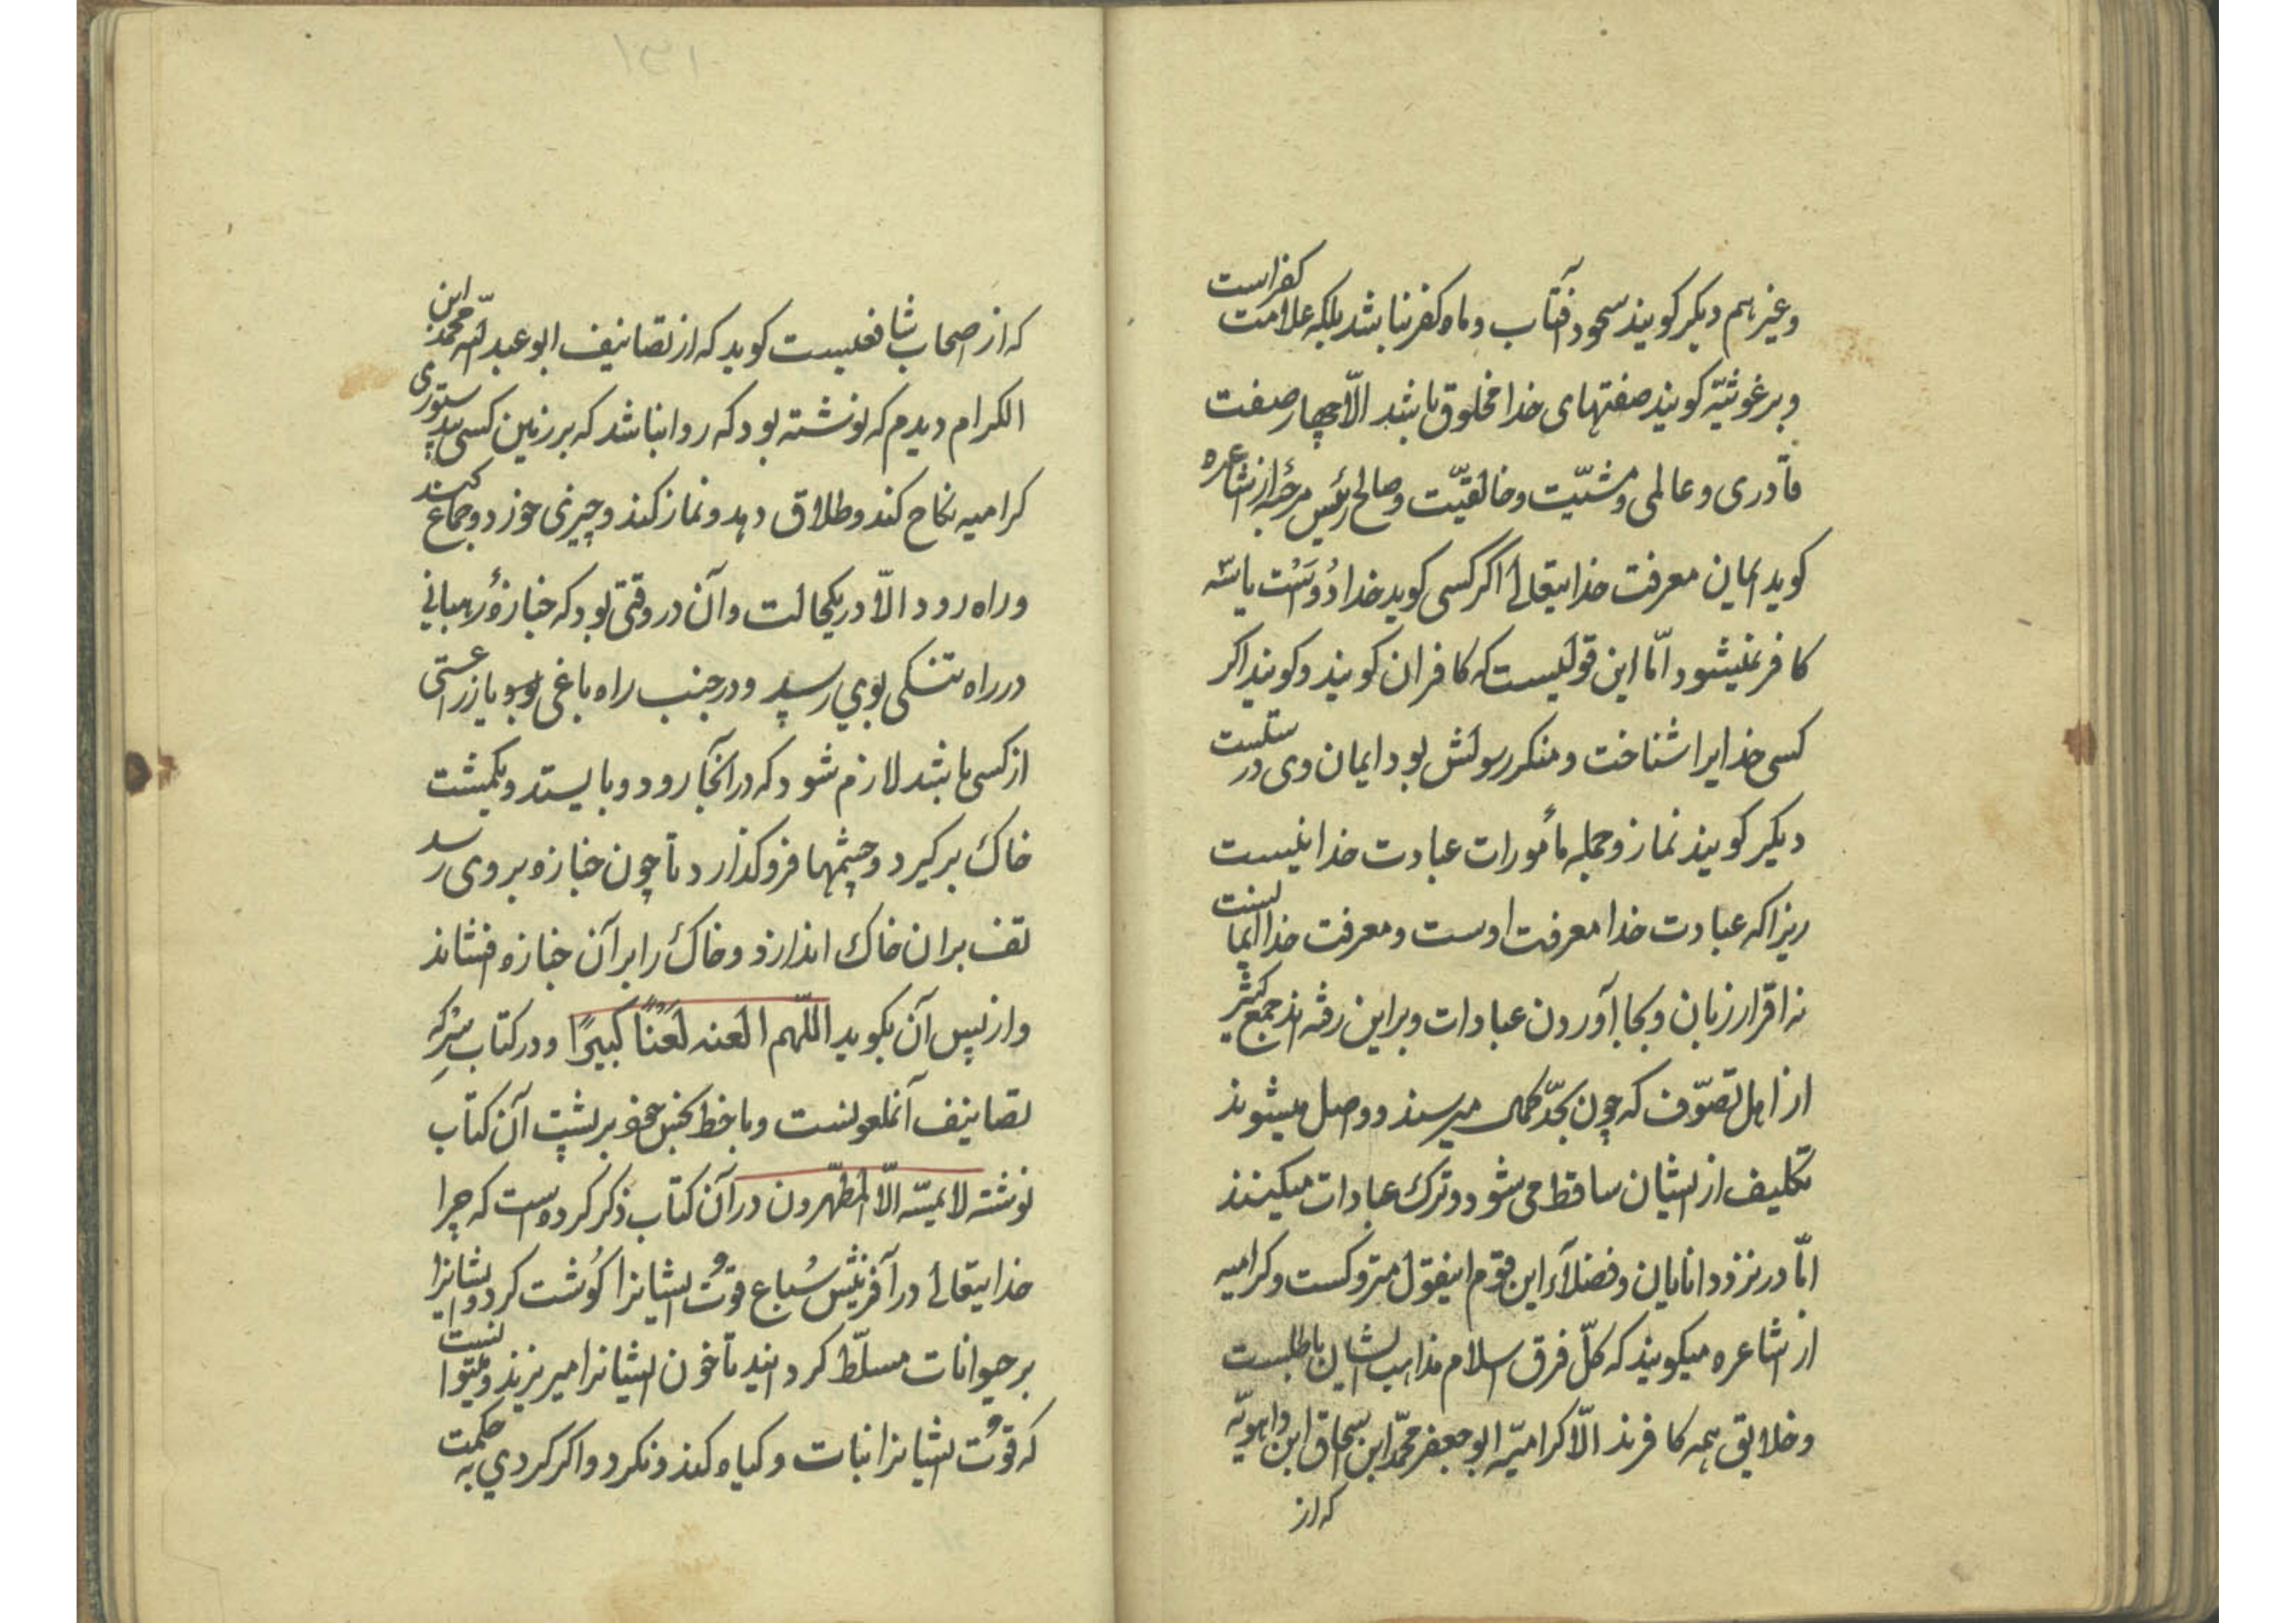 وغیرهم دیکر کویند سجود آفتاب و ماه کفر نباشد بلکه علامت کفراست
وبرغوثیّه کویند صفتهای خدا مخلوق باشد الّا چهار صفت
قادری و عالمی و مشیّت و خالقیّت و صالح رئیس مرجئه از اشاعره
کوید ایمان معرفت خدایتعالی اکر کسی کوید خدا دُوَست یا سه
کافر نمیشود امّا این قولیست که کافران کویند و کویند اکر
کسی خدایرا شناخت و منکر رسولش بود ایمان وی درستست
دیکر کویند نماز و جمله مأمورات عبادت خدا نیست
زیرا که عبادت خدا معرفت اوست و معرفت خدا ایمانست
نه اقرار زبان و بجا آوردن عبادات و براین رفته اند جمع کثیر
از اهل تصوّف که چون بحدّ کمال میرسند و واصل میشوند
تکلیف از ایشان ساقط می شود و ترک عبادات میکنند
امّا در نزد دانایان و فضلآء این قوم اینقول متروکست و کرامیه
از اشاعره میکویند که کلّ فرق اسلام مذاهب ایشان باطلست
و خلایق همه کافرند الّا کرامیّه ابو جعفر محمّد ابن اسحاق ابن واهویّه
که از
۱۳۱
که از اصحاب شافعیست کوید که از تصانیف ابو عبد الله محمّد ابن
الکرام دیدم که نوشته بود که روا نباشد که بر زمین کسی بیدستوری
کرامیه نکاح کند و طلاق دهد و نماز کند و چیزی خورد و جماع کند
و راه رود الّا در یکحالت و آن در وقتی بود که جنازهٔ رهبانی
در راه تنکی بوی رسید و در جنب راه باغی بود یا زراعتی
از کسی باشد لازم شود که در آنجا رود و بایستد و یکمشت
خاک برکیرد و چشمها فرو کذارد تا چون جنازه بر وی رسد
تف بران خاک اندازد و خاک را بر آن جنازه افشاند
و از پس آن بکوید اللّهم العنه لعنًا کبیرًا و در کتاب سِرّ که
تصانیف آنملعونست و با خط نجس خود بر پشت آن کتاب
نوشته لا یمسّه الّا المطهّرون در آن کتاب ذکر کرده است که چرا
خدایتعالی در آفرینش سُباع قوُت ایشانرا کوُشت کرد و ایشانرا
بر حیوانات مسلّط کردانید تا خون ایشانرا میریزند و میتوانست
که قوُت ایشانرا نبات و کیاه کند و نکرد و اکر کردی به حکمت